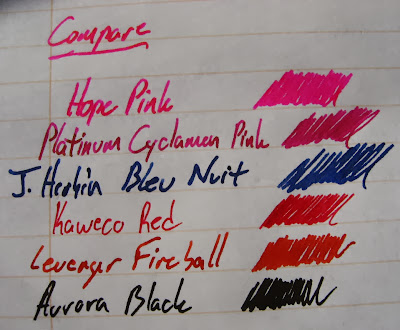 Compare
Hope Pink
Platinum Cyclamen Pink
J. Herbin Bleu Nuit
Kaweco Red
Levenger Fireball
Aurora Black